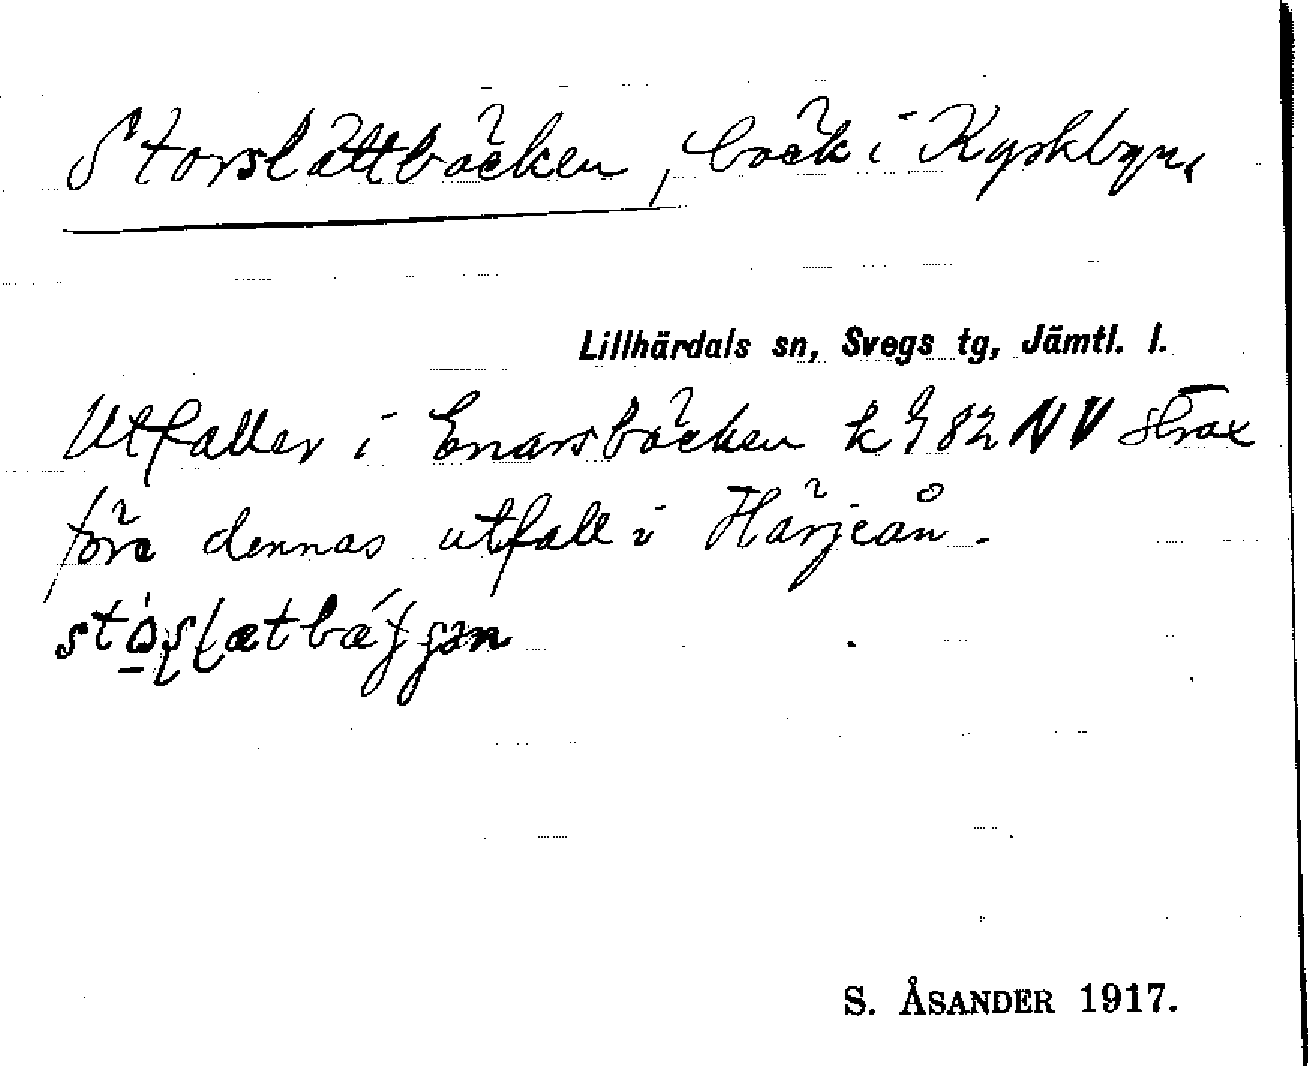 Storslättbäcken, bäck i Kyrkbyn.
Lillhärdals sn, Svegs tg, Jämtl. l.
Utfaller i Enarsbäcken k 982 NV strax
före dennas utfall i Härjeån.
S. ÅSANDER 1917.